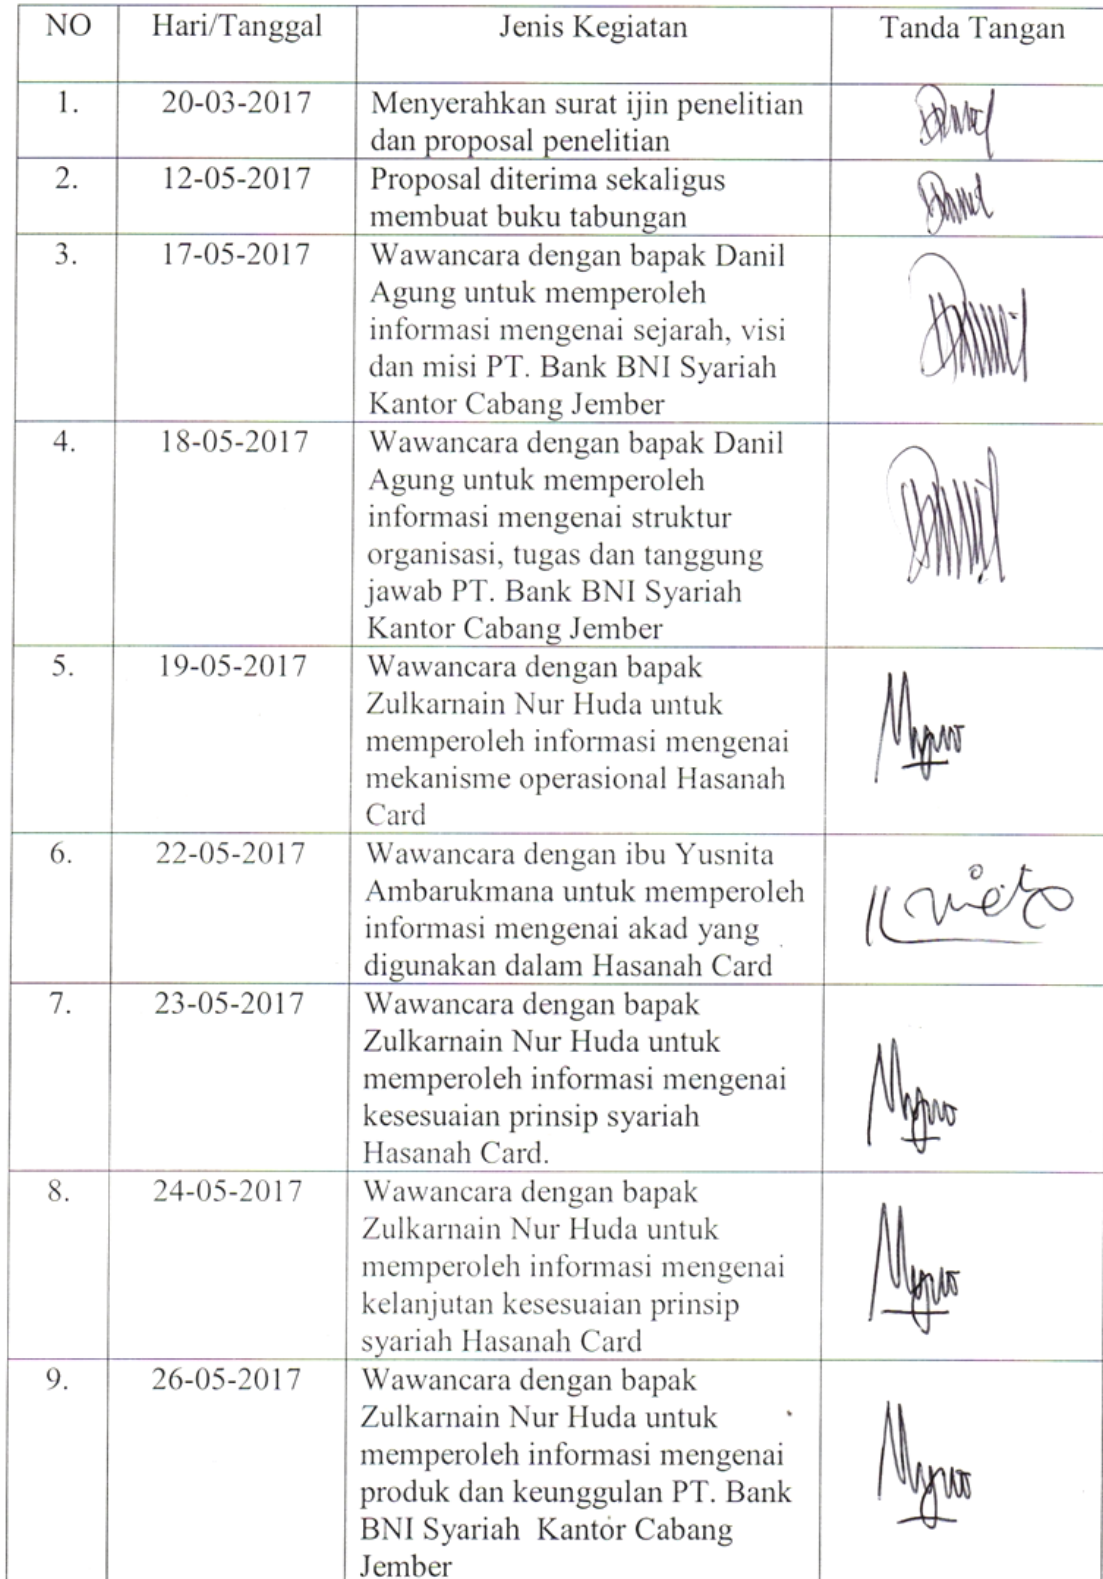 NO Hari/Tanggal Jenis Kegiatan Tanda Tangan
1. 20-03-2017 Menyerahkan surat ijin penelitian
dan proposal penelitian
2. 12-05-2017 Proposal diterima sekaligus
membuat buku tabungan
3. 17-05-2017 Wawancara dengan bapak Danil
Agung untuk memperoleh
informasi mengenai sejarah, visi
dan misi PT. Bank BNI Syariah
Kantor Cabang Jember
4. 18-05-2017 Wawancara dengan bapak Danil
Agung untuk memperoleh
informasi mengenai struktur
organisasi, tugas dan tanggung
jawab PT. Bank BNI Syariah
Kantor Cabang Jember
5. 19-05-2017 Wawancara dengan bapak
Zulkarnain Nur Huda untuk
memperoleh informasi mengenai
mekanisme operasional Hasanah
Card
6. 22-05-2017 Wawancara dengan ibu Yusnita
Ambarukmana untuk memperoleh
informasi mengenai akad yang
digunakan dalam Hasanah Card
7. 23-05-2017 Wawancara dengan bapak
Zulkarnain Nur Huda untuk
memperoleh informasi mengenai
kesesuaian prinsip syariah
Hasanah Card.
8. 24-05-2017 Wawancara dengan bapak
Zulkarnain Nur Huda untuk
memperoleh informasi mengenai
kelanjutan kesesuaian prinsip
syariah Hasanah Card
9. 26-05-2017 Wawancara dengan bapak
Zulkarnain Nur Huda untuk
memperoleh informasi mengenai
produk dan keunggulan PT. Bank
BNI Syariah Kantor Cabang
Jember